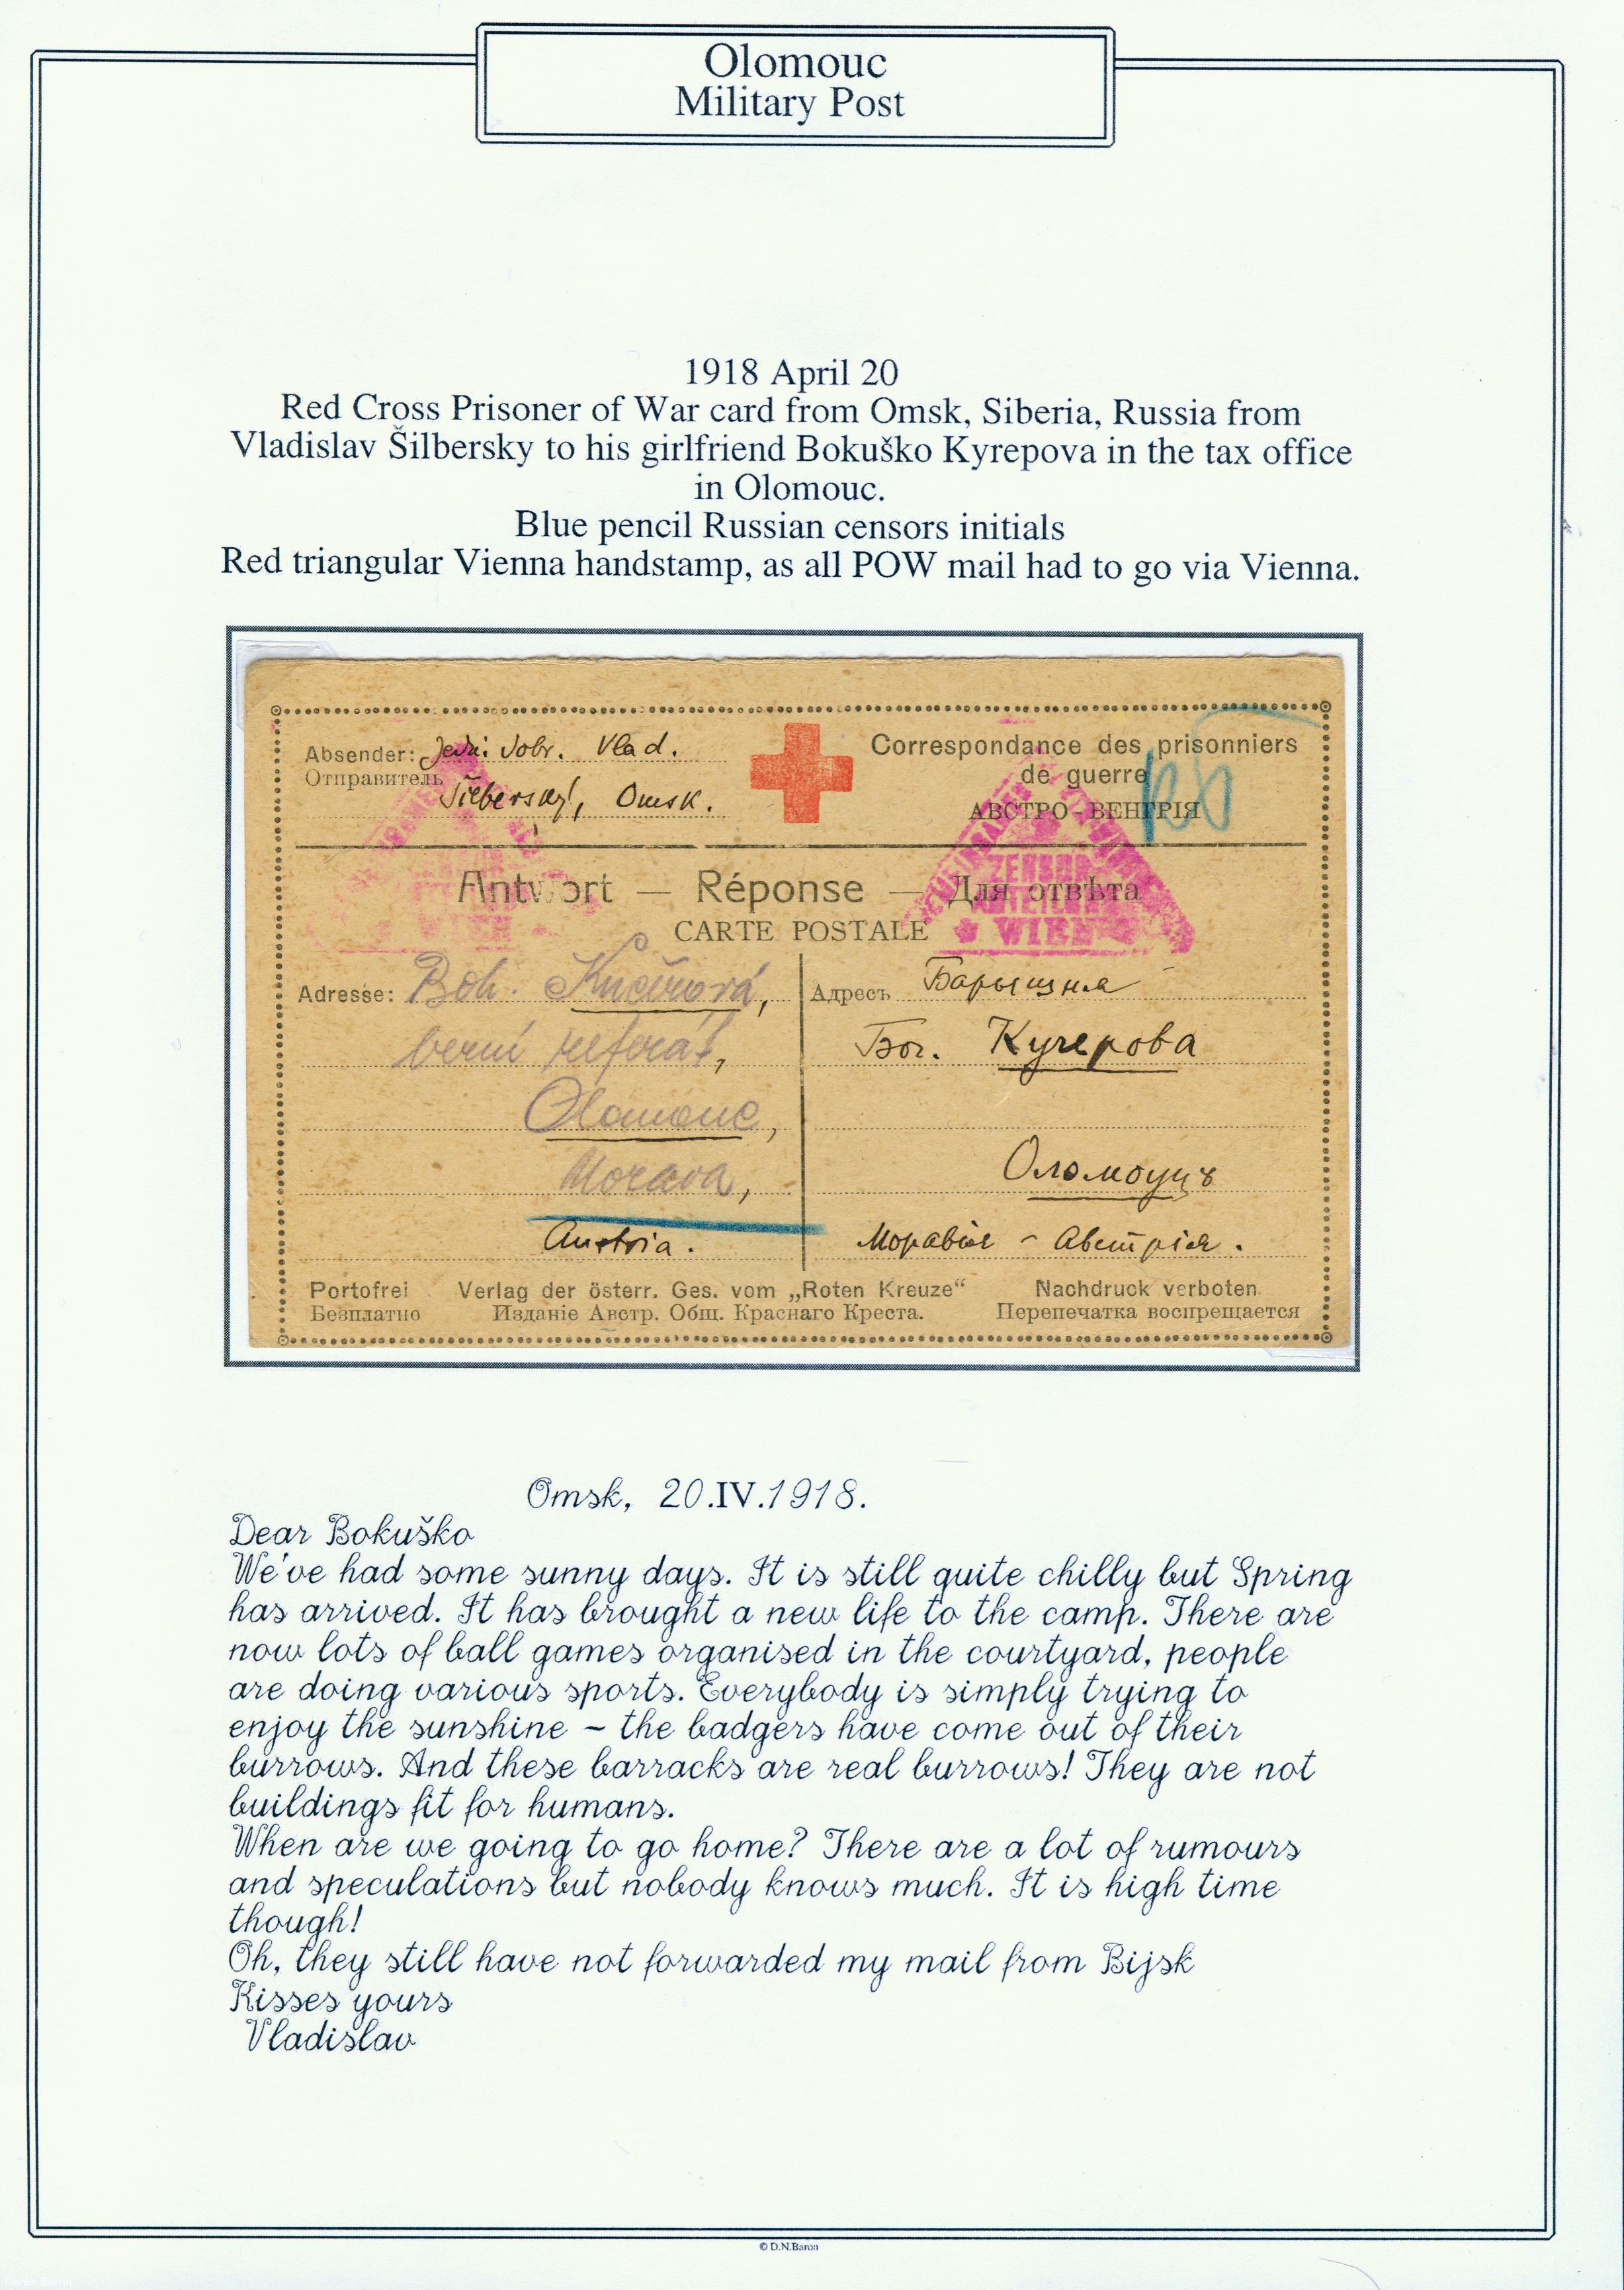 Olomouc
Military Post
1918 April 20
Red Cross Prisoner of War card from Omsk, Siberia, Russia from
Vladislav Šilbersky to his girlfriend Bokuško Kyrepova in the tax office
in Olomouc.
Blue pencil Russian censors initials
Red triangular Vienna handstamp, as all POW mail had to go via Vienna.
Absender: Vlad.
Отправитель Omsk.
Correspondance des prisonniers
de guerre
АВСТРО-ВЕНГРІЯ
Antwort — Réponse — Для отвѣта
CARTE POSTALE
ZENSUR
WIEN
Adresse: Boh.
berní referát,
Olomouc,
Morava,
Austria.
Адресъ Барышня
Бог. Кучерова
Оломоуцъ
Моравія - Австрія.
Portofrei Verlag der österr. Ges. vom „Roten Kreuze“ Nachdruck verboten
Безплатно Изданіе Австр. Общ. Краснаго Креста. Перепечатка воспрещается
Omsk, 20.IV.1918.
Dear Bokuško
We've had some sunny days. It is still quite chilly but Spring
has arrived. It has brought a new life to the camp. There are
now lots of ball games organised in the courtyard, people
are doing various sports. Everybody is simply trying to
enjoy the sunshine ~ the badgers have come out of their
burrows. And these barracks are real burrows! They are not
buildings fit for humans.
When are we going to go home? There are a lot of rumours
and speculations but nobody knows much. It is high time
though!
Oh, they still have not forwarded my mail from Bijsk
Kisses yours
Vladislav
© D.N.Baron